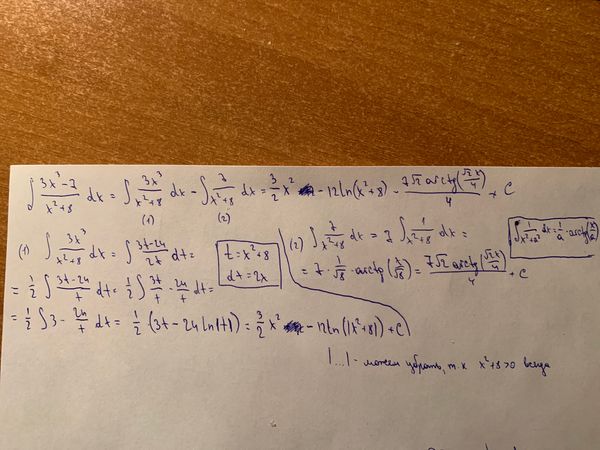 ∫ (3x³ - 7)/(x²+8) dx = ∫ 3x³/(x²+8) dx - ∫ 7/(x²+8) dx = 3/2 x² - 12 ln(x²+8) - 7√2 arctg(√2 x/4)/4 + C
(1) (2)
(1) ∫ 3x³/(x²+8) dx = ∫ (3t-24)/(2t) dt =
= 1/2 ∫ (3t-24)/t dt = 1/2 ∫ 3t/t - 24/t dt =
= 1/2 ∫ 3 - 24/t dt = 1/2 (3t - 24 ln|t|) = 3/2 x² - 12 ln(|x²+8|) + C
t = x²+8
dt = 2x
(2) ∫ 7/(x²+8) dx = 7 ∫ 1/(x²+8) dx =
= 7 · 1/√8 · arctg(x/√8) = 7√2 arctg(√2 x/4)/4 + C
∫ 1/(x²+a²) dx = 1/a · arctg(x/a)
|...| - можем убрать, т.к x²+8>0 всегда